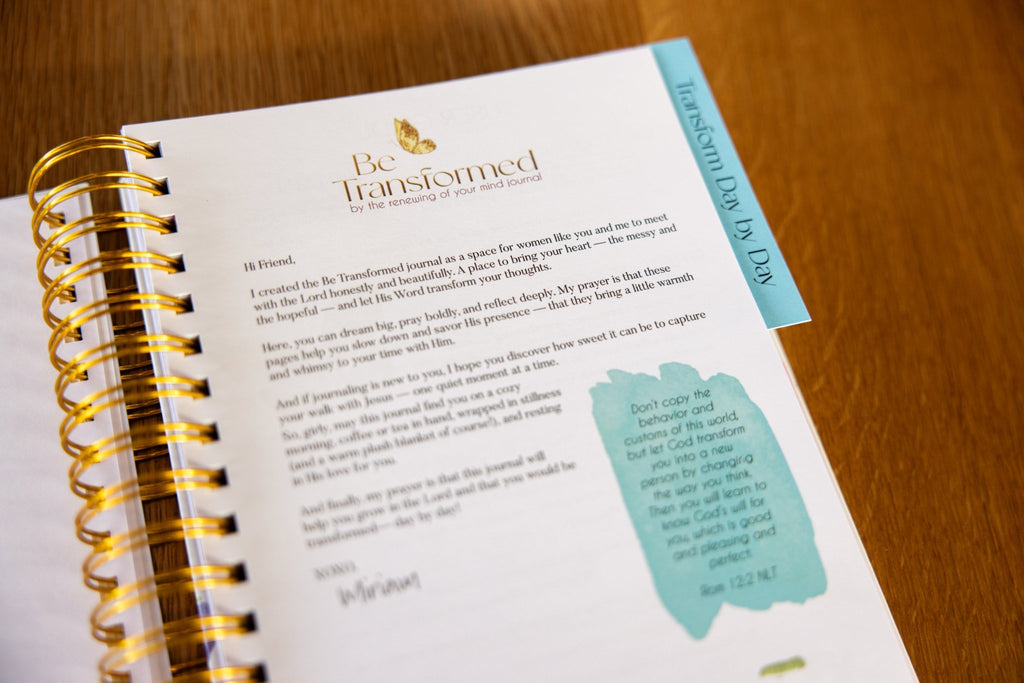 Be
Transformed
by the renewing of your mind journal
Transform Day by Day
Hi Friend,
I created the Be Transformed journal as a space for women like you and me to meet
with the Lord honestly and beautifully. A place to bring your heart — the messy and
the hopeful — and let His Word transform your thoughts.
Here, you can dream big, pray boldly, and reflect deeply. My prayer is that these
pages help you slow down and savor His presence — that they bring a little warmth
and whimsy to your time with Him.
And if journaling is new to you, I hope you discover how sweet it can be to capture
your walk with Jesus — one quiet moment at a time.
So, girly, may this journal find you on a cozy
morning, coffee or tea in hand, wrapped in stillness
(and a warm plush blanket of course!), and resting
in His love for you.
And finally, my prayer is that this journal will
help you grow in the Lord and that you would be
transformed — day by day!
XOXO,
Miriam
Don't copy the
behavior and
customs of this world,
but let God transform
you into a new
person by changing
the way you think.
Then you will learn to
know God's will for
you, which is good
and pleasing and
perfect.
Rom 12:2 NLT